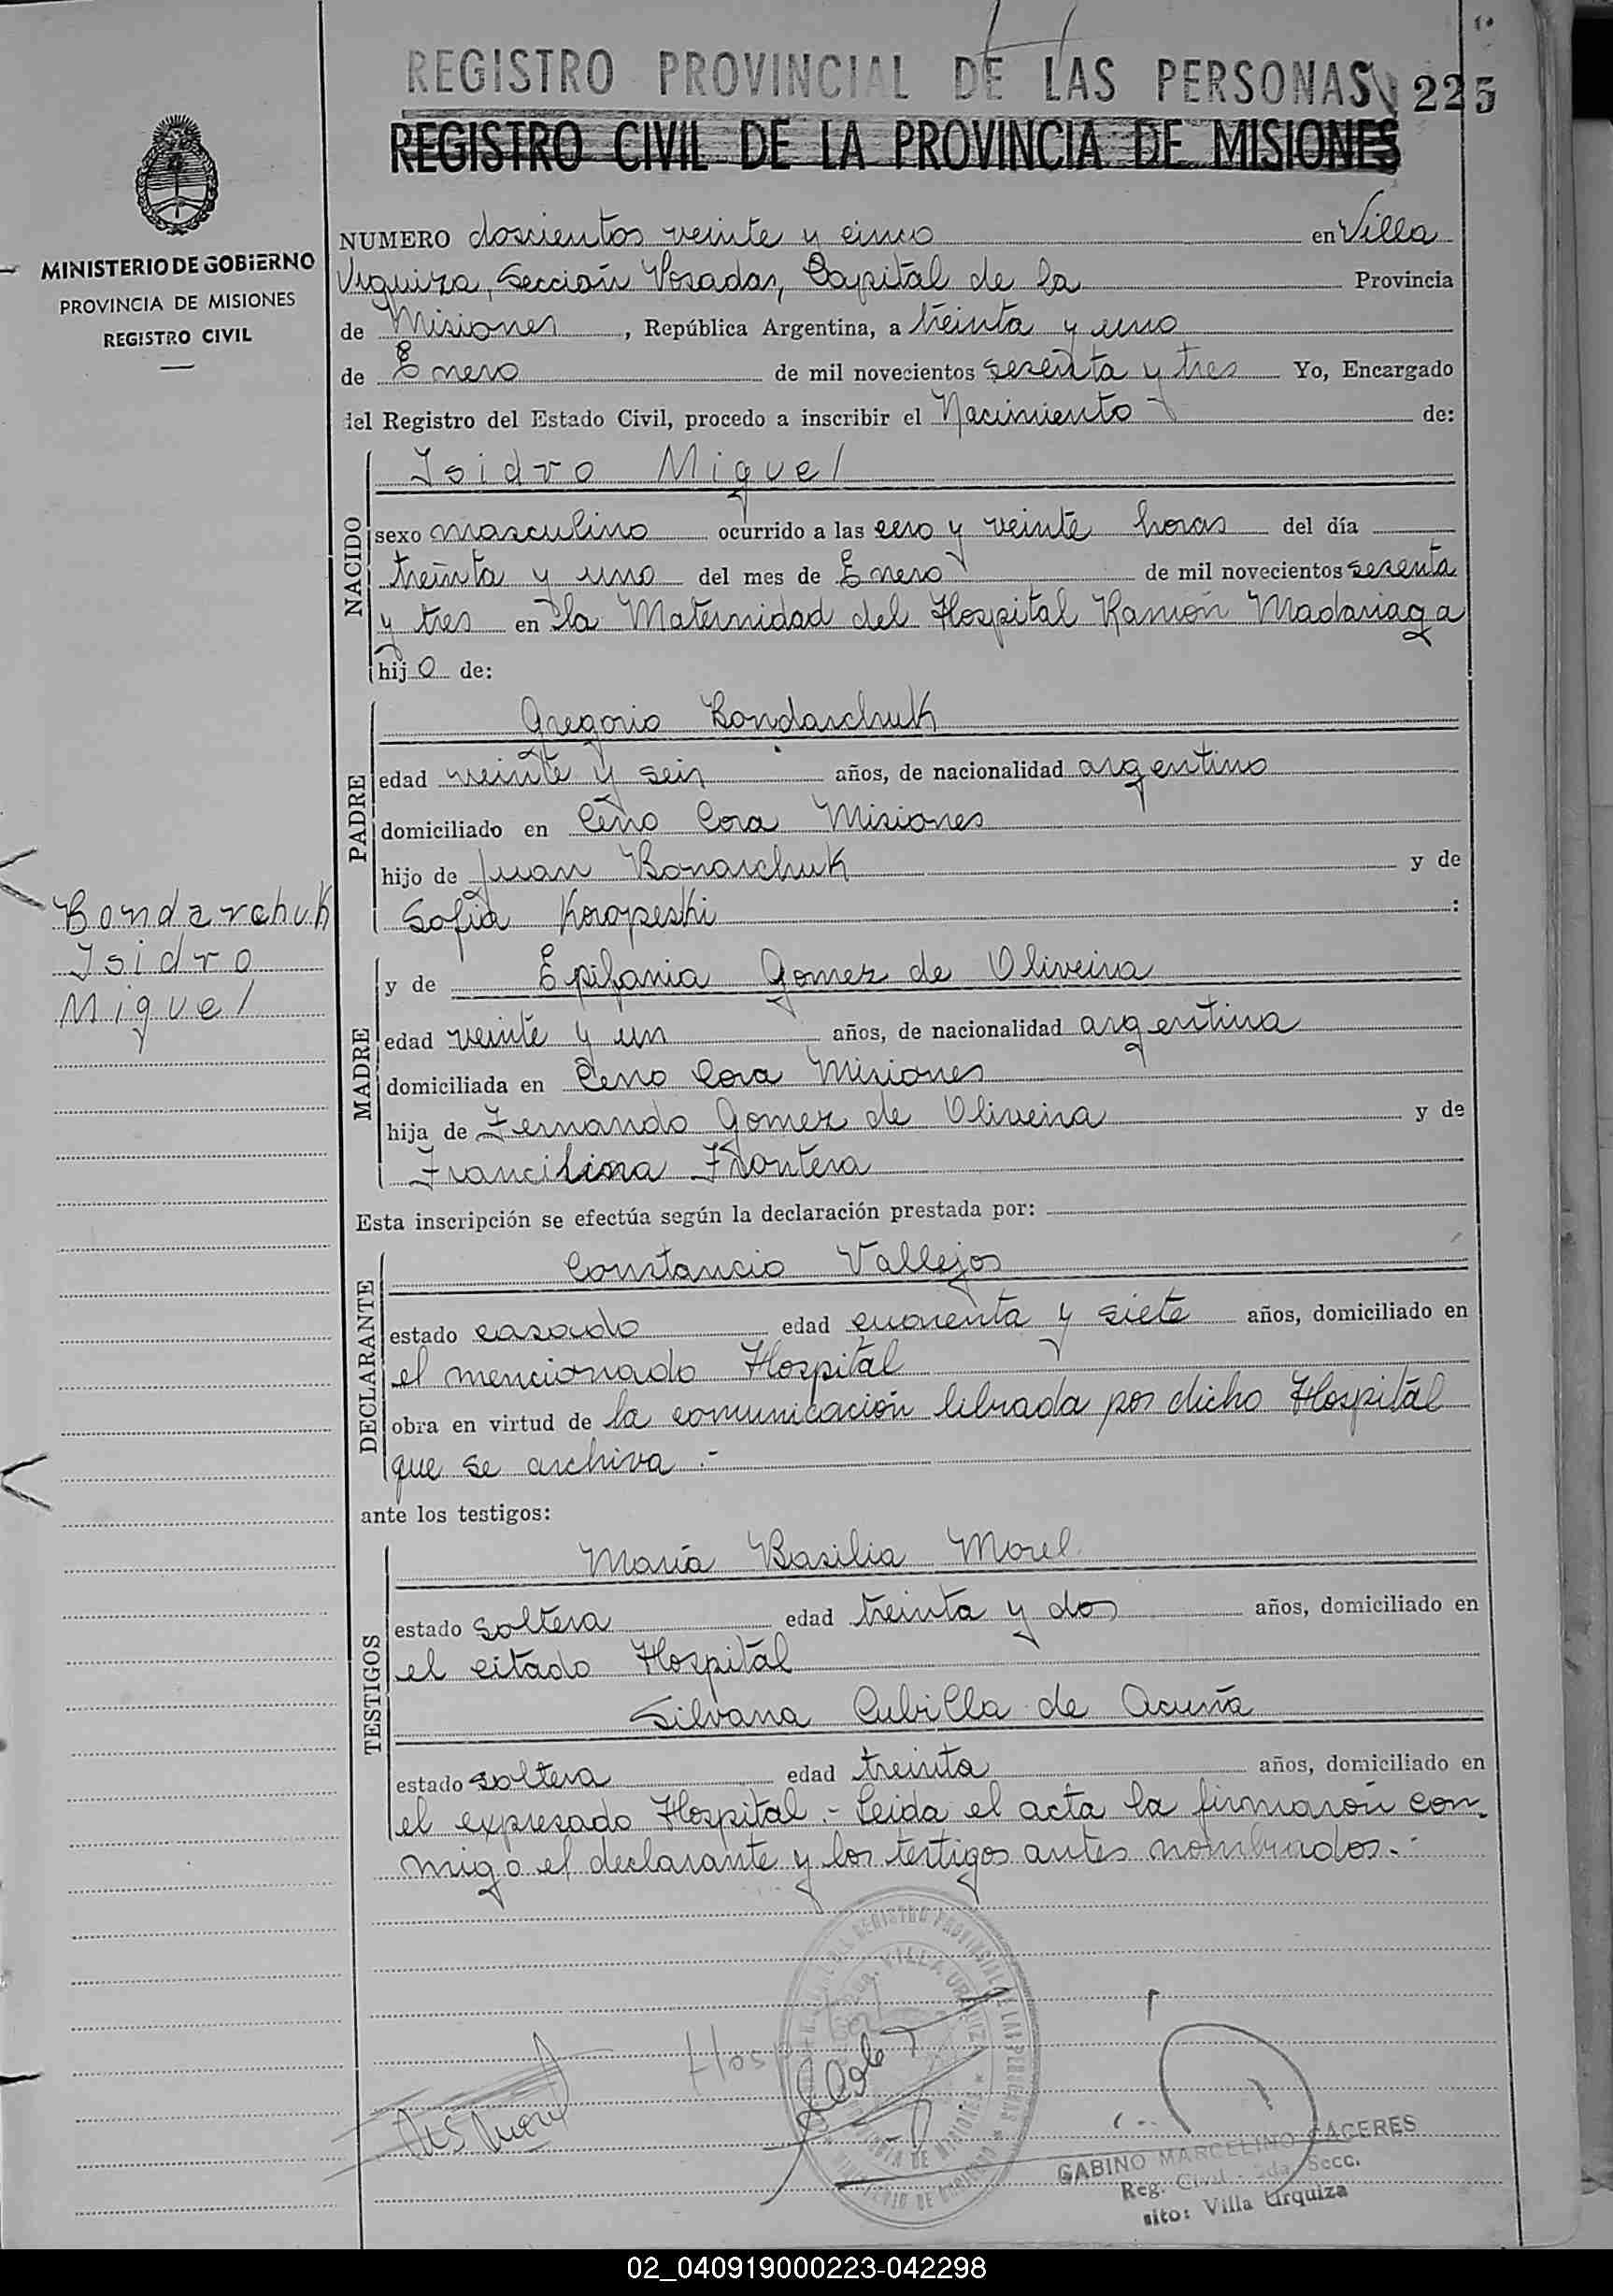 REGISTRO PROVINCIAL DE LAS PERSONAS
225
REGISTRO CIVIL DE LA PROVINCIA DE MISIONES
MINISTERIO DE GOBIERNO
PROVINCIA DE MISIONES
REGISTRO CIVIL
NUMERO doscientos veinte y cinco en Villa
Urquiza, Sección Posadas, Capital de la Provincia
de Misiones, República Argentina, a treinta y uno
de Enero de mil novecientos sesenta y tres Yo, Encargado
del Registro del Estado Civil, procedo a inscribir el Nacimiento de:
NACIDO
Isidro Miguel
sexo masculino ocurrido a las cero y veinte horas del día
treinta y uno del mes de Enero de mil novecientos sesenta
y tres en la Maternidad del Hospital Ramón Madariaga
hijo de:
PADRE
Gregorio Bondarchuk
edad veinte y seis años, de nacionalidad argentino
domiciliado en Cerro Cora Misiones
hijo de Juan Bonarchuk y de
Sofia :
Bondarchuk
Isidro
Miguel
MADRE
y de Epifania Gomez de Oliveira
edad veinte y un años, de nacionalidad argentina
domiciliada en Cerro Cora Misiones
hija de Fernando Gomez de Oliveira y de
Francilina Frontera
Esta inscripción se efectúa según la declaración prestada por:
DECLARANTE
Constancio Vallejos
estado casado edad cuarenta y siete años, domiciliado en
el mencionado Hospital
obra en virtud de la comunicación librada por dicho Hospital
que se archiva.-
ante los testigos:
TESTIGOS
María Basilia Morel
estado soltera edad treinta y dos años, domiciliado en
el citado Hospital
Silvana Cubilla de Acuña
estado soltera edad treinta años, domiciliado en
el expresado Hospital.- Leida el acta la firmaron con-
migo el declarante y los testigos antes nombrados.-
GABINO MARCELINO CACERES
Reg. Civil - 2da. Secc.
sito: Villa Urquiza
02_040919000223-042298